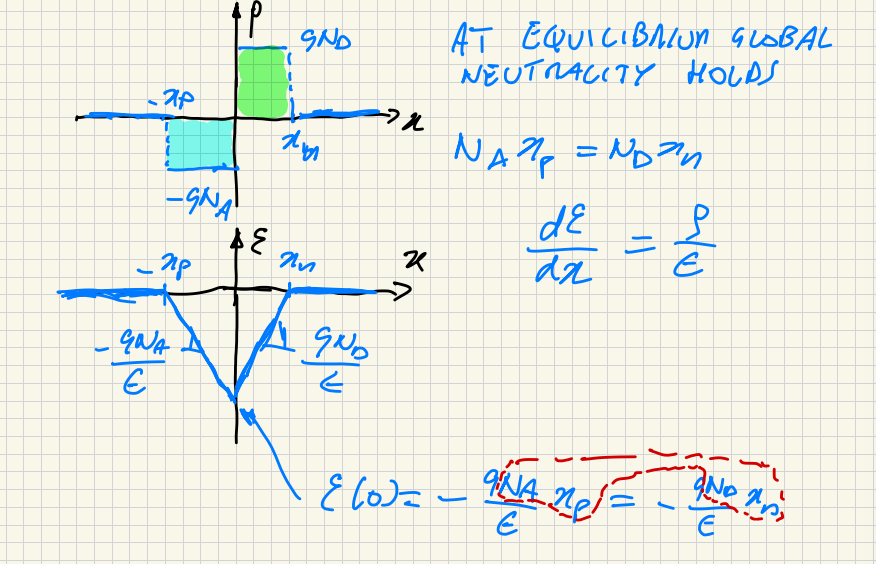 ρ
qN_D
-x_p
x
x_n
-qN_A
AT EQUILIBRIUM GLOBAL
NEUTRALITY HOLDS
N_A x_p = N_D x_n
dℰ/dx = ρ/ϵ
ℰ
-x_p
x_n
x
-qN_A/ϵ
qN_D/ϵ
ℰ(0) = - qN_A/ϵ x_p = - qN_D/ϵ x_n